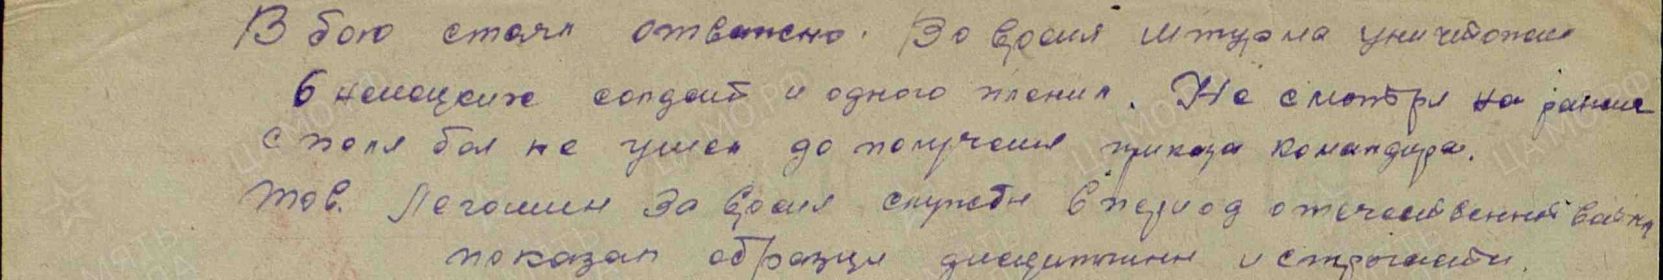 В бою стоял отважно. Во время штурма уничтожил
6 немецких солдат и одного пленил. Не смотря на ранение
с поля боя не ушел до получения приказа командира.
Тов. за время службы в период отечественной войны
показал образцы дисциплины и